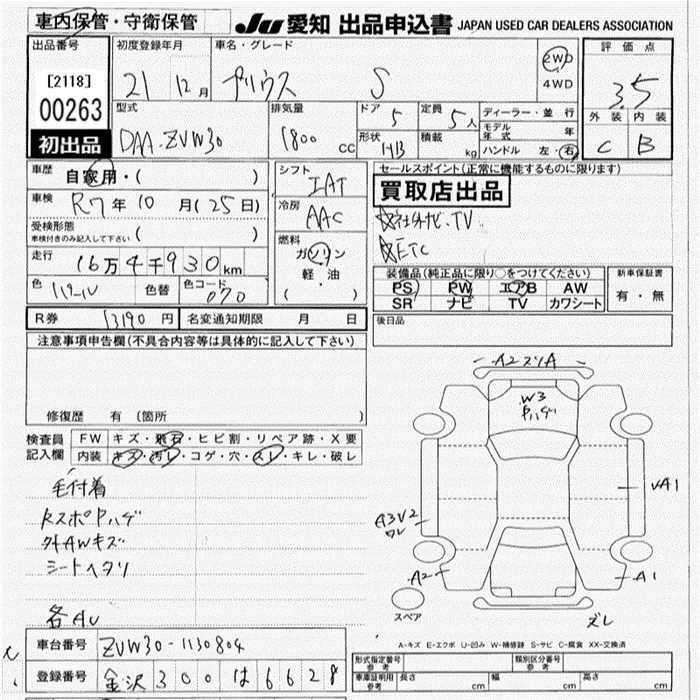 車内保管・守衛保管
JU 愛知 出品申込書 JAPAN USED CAR DEALERS ASSOCIATION
出品番号
[2118]
00263
初出品
初度登録年月
21 12月
車名・グレード
プリウス S
2WD
4WD
評価点
3.5
外装 内装
C B
型式
DAA-ZVW30
排気量
1800 CC
ドア 5
定員 5人
形状 HB
積載 kg
ディーラー・並行
モデル年式 年
ハンドル 左・右
車歴
自家用・( )
車検 R7年10月(25日)
受検形態
車検付きのみ記入して下さい ( )
走行 16万4千930km
色 色替 色コード 070
シフト
IAT
冷房
AAC
燃料
ガソリン
軽・油
( )
セールスポイント(正常に機能するものに限ります)
買取店出品
社外ナビ.TV
ETC
装備品(純正品に限り○をつけてください)
PS PW エアB AW
SR ナビ TV カワシート
新車保証書
有・無
R券 13190円 名変通知期限 月 日
後日品
注意事項申告欄(不具合内容等は具体的に記入して下さい)
修復歴 有 (箇所 )
検査員記入欄
FW キズ・飛石・ヒビ割・リペア跡・X要
内装 キズ・汚レ・コゲ・穴・スレ・キレ・破レ
毛付着
RスポPハゲ
外AWキズ
シートヘタリ
各AU
A2スリA
W3
Pハゲ
VA1
A3V2
ワレ
A2
A1
スペア
ズレ
A-キズ E-エクボ U-凹み W-補修跡 S-サビ C-腐食 XX-交換済
車台番号 ZVW30-1130804
登録番号 金沢 300 は 6628
形式指定番号 参考
類別区分番号 参考
車庫証明用 参考 長さ cm 幅 cm 高さ cm